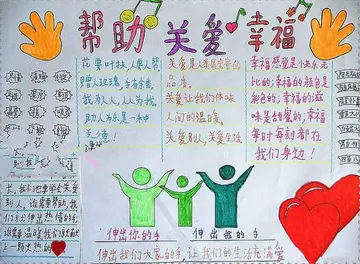 帮助 关爱 幸福
花要叶扶,人要人帮,
赠人玫瑰,手有余香,
我为人人,人人为我,
助人为乐是一种
关爱是人类最宝贵的
品质。
关爱让我们体味
人间的温暖。
关爱别人,关爱生活
幸福感觉是快乐无
比的;幸福的颜色是
彩色的;幸福的滋
味是甜蜜的,幸福
每时每刻都在
我们身边!
别人,谁需要帮助,我
们就伸出热情的手,
谁需要温暖我们就献出
一颗火热的
伸出你的手 伸出我的手
伸出我们大家的手 让我们的生活充满爱